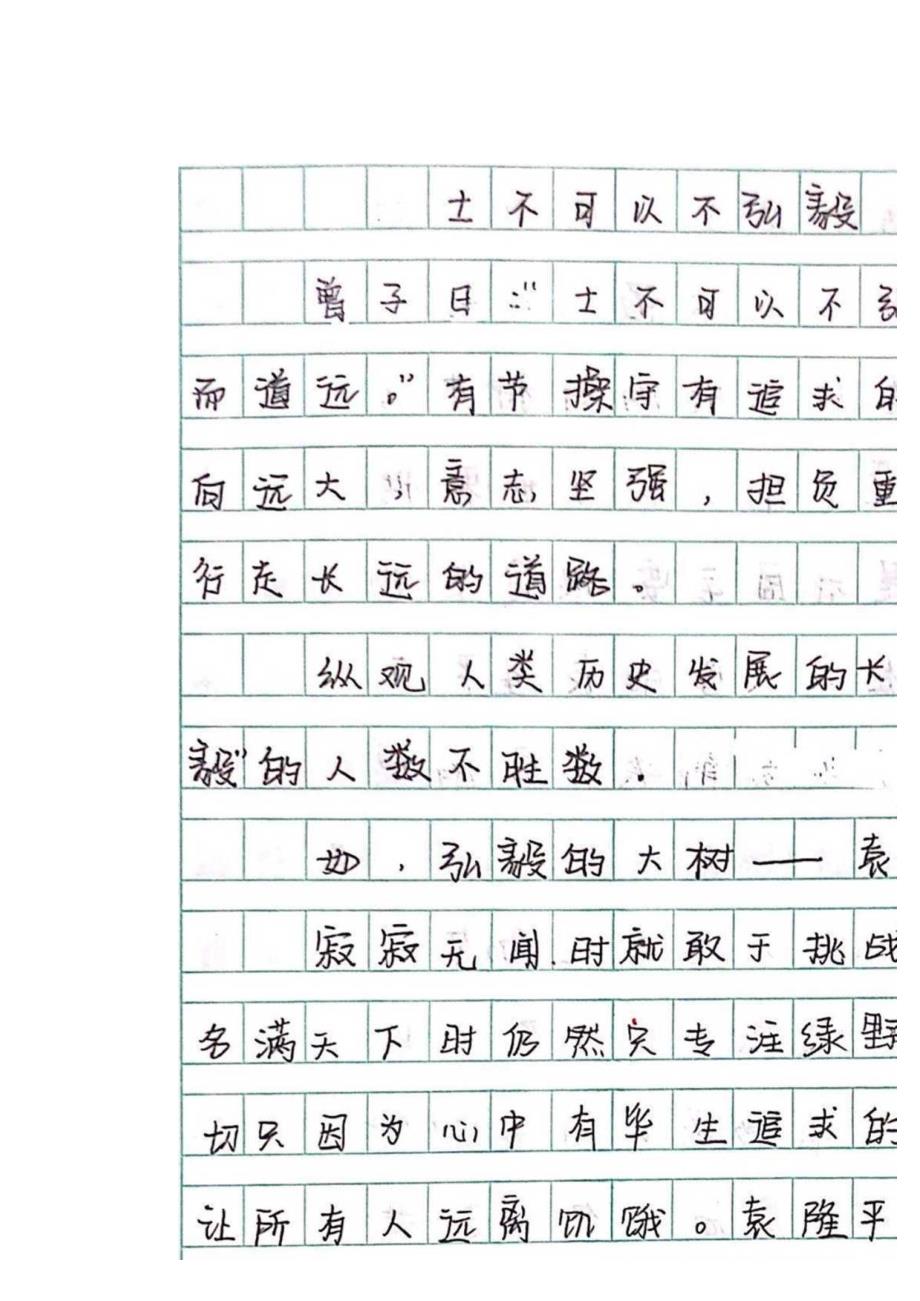 士不可以不弘毅
曾子曰:"士不可以不
而道远。"有节操守有追求的
向远大,意志坚强,担负重
行走长远的道路。
纵观人类历史发展的长
毅"的人数不胜数.
如,弘毅的大树——袁
寂寂无闻时就敢于挑战
名满天下时仍然只专注绿野
切只因为心中有毕生追求的
让所有人远离饥饿。袁隆平